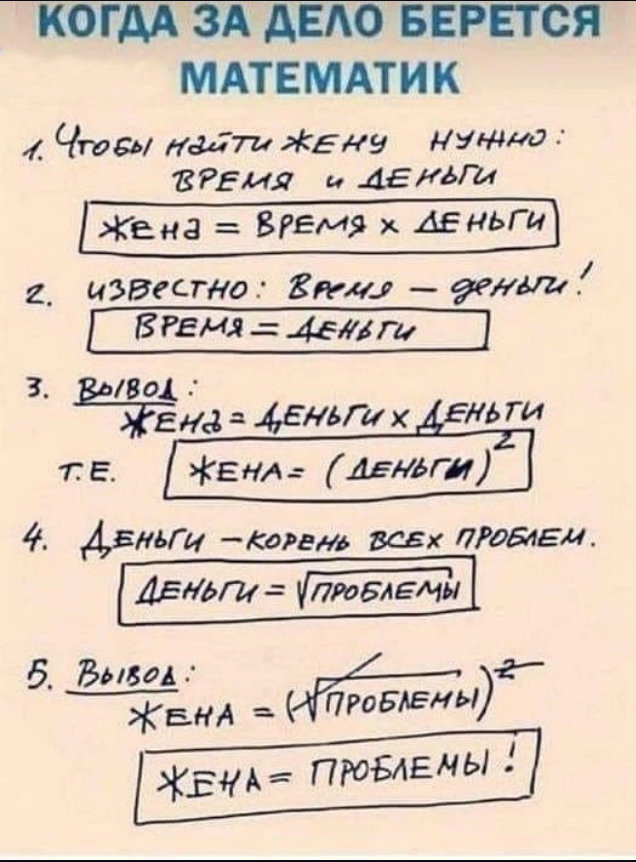 КОГДА ЗА ДЕЛО БЕРЕТСЯ
МАТЕМАТИК
1. Чтобы найти жену нужно:
время и деньги
Жена = время x деньги
2. известно: Время – деньги!
Время = деньги
3. Вывод:
Жена = деньги x деньги
т.е. Жена = (деньги)²
4. Деньги – корень всех проблем.
Деньги = √проблемы
5. Вывод:
Жена = (√проблемы)²
Жена = проблемы!